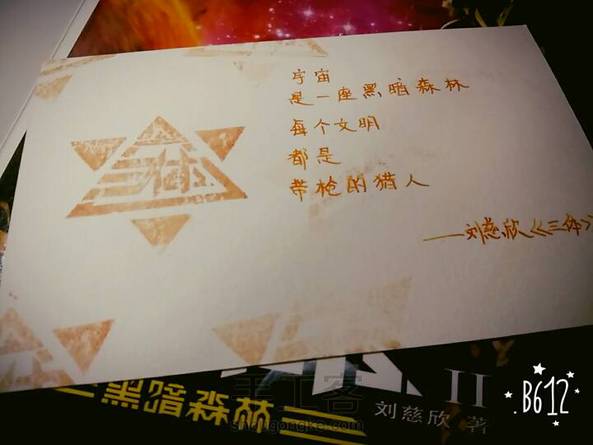 宇宙
是一座黑暗森林
每个文明
都是
带枪的猎人
——刘慈欣《三体》
三体
II
黑暗森林
刘慈欣 著
手工客
shougongke.com
B612